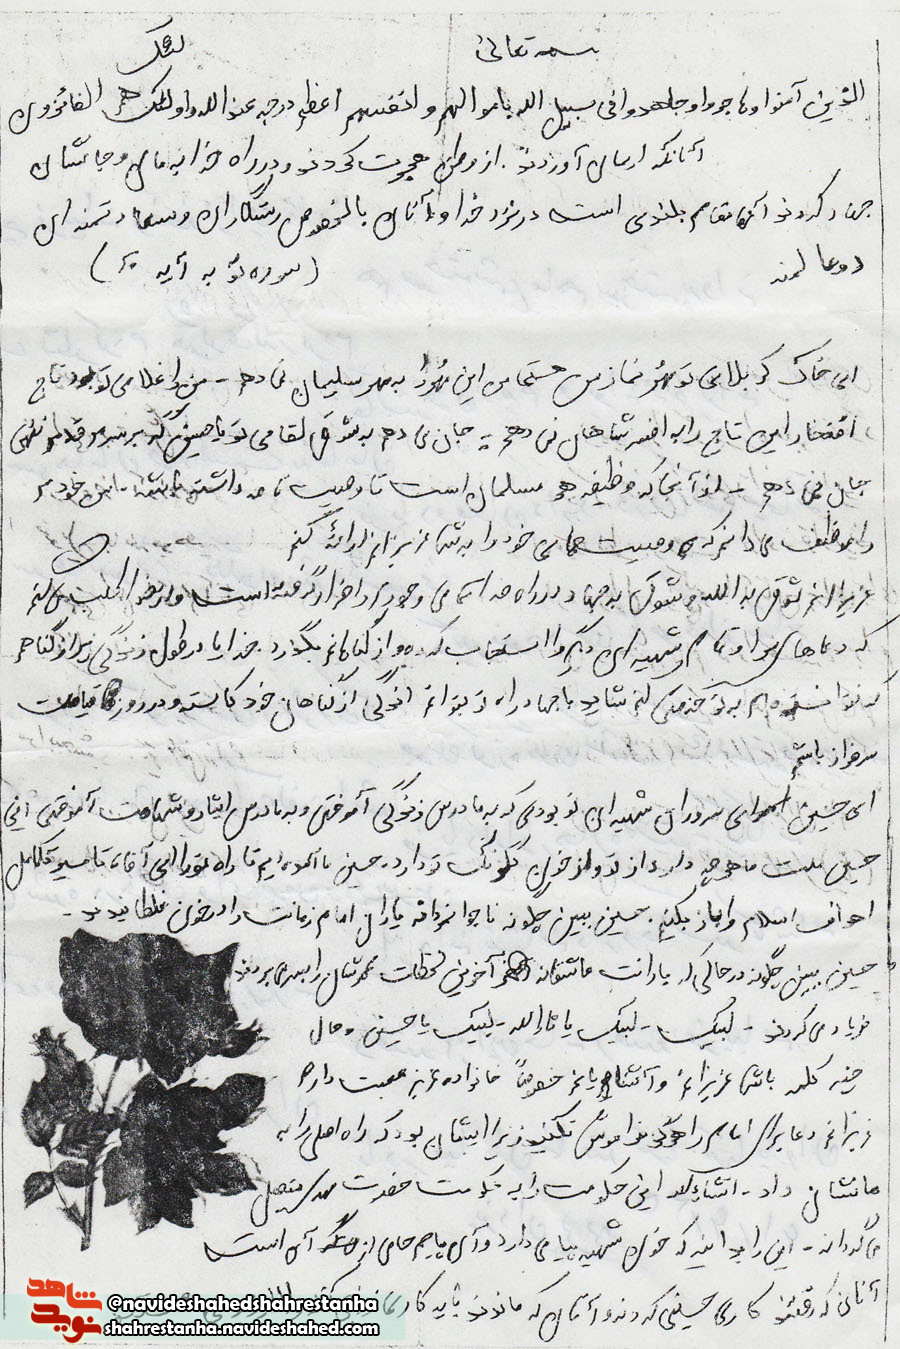 بسمه تعالی
الذین آمنوا و هاجروا و جاهدوا فی سبیل الله باموالهم و انفسهم اعظم درجه عند الله و اولئک هم الفائزون
آنانکه ایمان آوردند . از وطن هجرت کردند و در راه خدا به مال و جانشان
جهاد کردند آنها مقام بلندی است در نزد خدا و آنان بالخصوص رستگاران و سعادتمندان
دو عالمند (سوره توبه آیه ۲۰)
ای خاک کربلای تو مهر نماز من این مهر را به مهر سلیمان نمی دهم - من را غلامی تو بود تاج
افتخار این تاج را به افسر شاهان نمی دهم - جان می دهم به شوق لقای تو یا حسین گر بر سرم قدم ننهی
جان نمی دهم - از آنجا که وظیفه هر مسلمان است تا وصیت نامه داشته باشد - این خود بر
را موظف می دانم که وصیت خود را به شما عزیزانم ارائه کنم
عزیزانم شوق به الله و شوق به جهاد در راه خدا تمامی وجودم را فرا گرفته است و از خدا طلب می کنم
که دعاهای مرا و تمام شهیدای دیگر را مستجاب کرده و از گناهانم بگذرد . خدایا در طول زندگی
که نتوانسته ام به تو خدمتی کنم شاید با جهاد راه تو بتوانم اندکی از گناهان خود کاسته و در روز قیامت
سرفراز باشم
ای حسین ای سرور شهیدان تو بودی که به ما درس زندگی آموختی و به ما درس ایثار و شهادت آموختی
حسین ملت ما هر چه دارد از تو و از خون گلگونت دارد . حسین ما آمده ایم تا راه تو را ادامه
اهداف اسلام را باز بکنیم . حسین ببین چگونه ناجوانمردانه یاران امام زمانت را در خون غلطانیدند -
حسین ببین چگونه در حالی که یارانت عاشقانه آخرین لحظات عمرشان را بسر می بردند
فریاد می کردند - لبیک - لبیک یا ثارالله - لبیک یا حسین و حال
چند کلمه با شما عزیزانم و آشنایانم خصوصاً خانواده عزیز صحبت دارم
عزیزانم دعا برای امام را فراموش نکنید زیرا ایشان بود که راه اصلی را به
ما نشان داد - انشاءالله این حکومت را به حکومت حضرت مهدی متصل
می گرداند - این را بدانید که خون شهید پیامی دارد
آنان که رفتند کاری حسینی کردند و آنان که ماندند باید کاری
شاهد
نوید
@navideshahedshahrestanha
shahrestanha.navideshahed.com